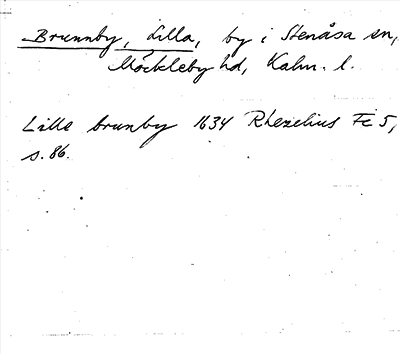 Brunnby, Lilla, by i Stenåsa sn,
Möckleby hd, Kalm. l.
Lille brunby 1634 Rhezelius Fc 5,
s. 86.